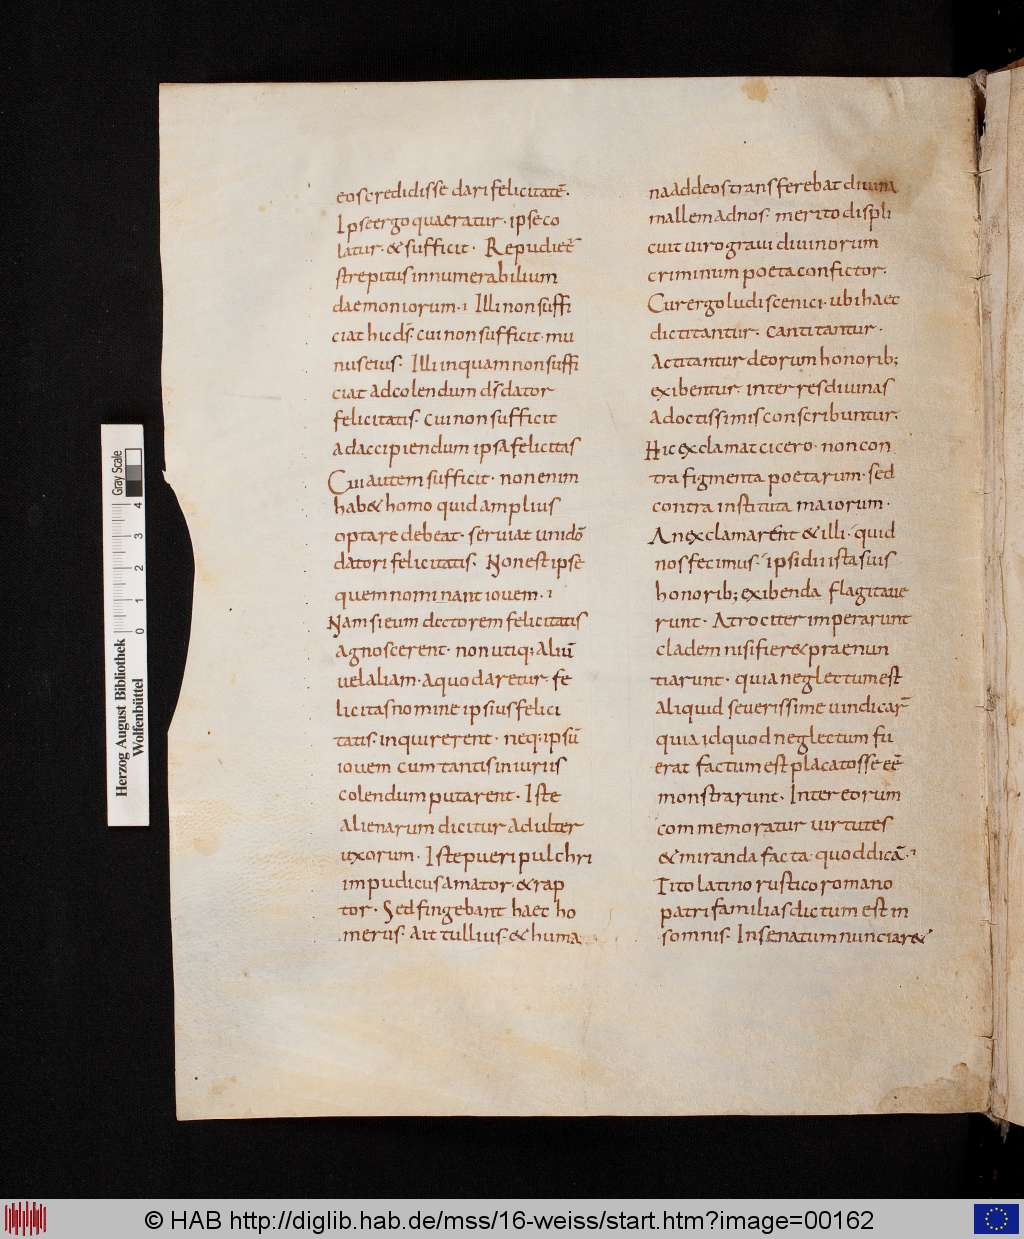 eos credidisse dari felicitatē.
Ipse ergo quaeratur. ipse co
latur. & sufficit. Repudiet̄
strepitus innumerabilium
daemoniorum. Illi non suffi
ciat hic d̄s. cui non sufficit mu
nus eius. Illi inquam non suffi
ciat ad colendum d̄s dator
felicitatis. cui non sufficit
ad accipiendum ipsa felicitas
Cui autem sufficit. non enim
hab& homo quid amplius
optare debeat. seruiat uni dō
datori felicitatis. Non est ipse
quem nominant iouem.
Nam si eum dectorem felicitatis
agnoscerent. non utiq; aliū
uel aliam. a quo daretur fe
licitas nomine ipsius felici
tatis. inquirerent. neq; ipsū
iouem cum tantis iniuriis
colendum putarent. Iste
alienarum dicitur adulter
uxorum. Iste pueri pulchri
impudicus amator. & rap
tor. Sed fingebant haec ho
merus. Ait tullius. & huma
na ad deos transferebat diuina
mallem ad nos. merito displi
cuit uiro graui diuinorum
criminum poeta confictor.
Cur ergo ludi scenici. ubi haec
dictitantur. cantitantur.
Actitantur deorum honorib;
exibentur. inter res diuinas
a doctissimis conscribuntur.
Hic exclamat cicero. non con
tra figmenta poetarum. sed
contra instituta maiorum.
An exclamarent & illi. quid
nos fecimus. ipsi dii ista suis
honorib; exibenda flagitaue
runt. Atrociter imperarunt
cladem nisi fier& praenun
tiarunt. quia neglectum est
aliquid seuerissime uindicar̄
quia id quod neglectum fu
erat factum est placatosse eē
monstrarunt. Inter eorum
commemoratur uirtutes
& miranda facta. quod dicā.
Tito latino rustico romano
patri familias dictum est in
somnis. In senatum nunciar&
Gray Scale
0 1 2 3 4
Herzog August Bibliothek
Wolfenbüttel
© HAB http://diglib.hab.de/mss/16-weiss/start.htm?image=00162